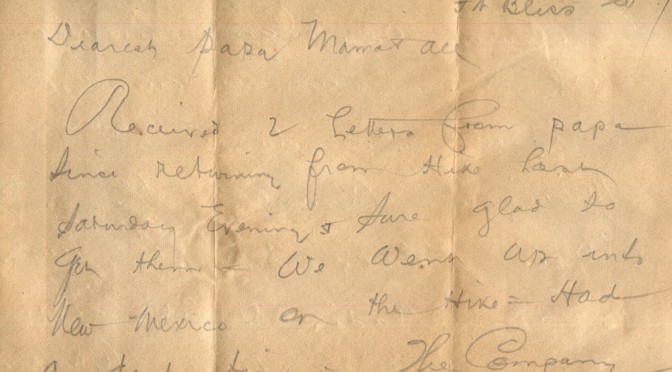 Ft Bliss
Dearest papa Mama & all
Received 2 Letters from papa
Since returning from Hike Last
Saturday Evening & Sure glad to
Get them = We Went up into
New Mexico on the Hike = Had
The Company